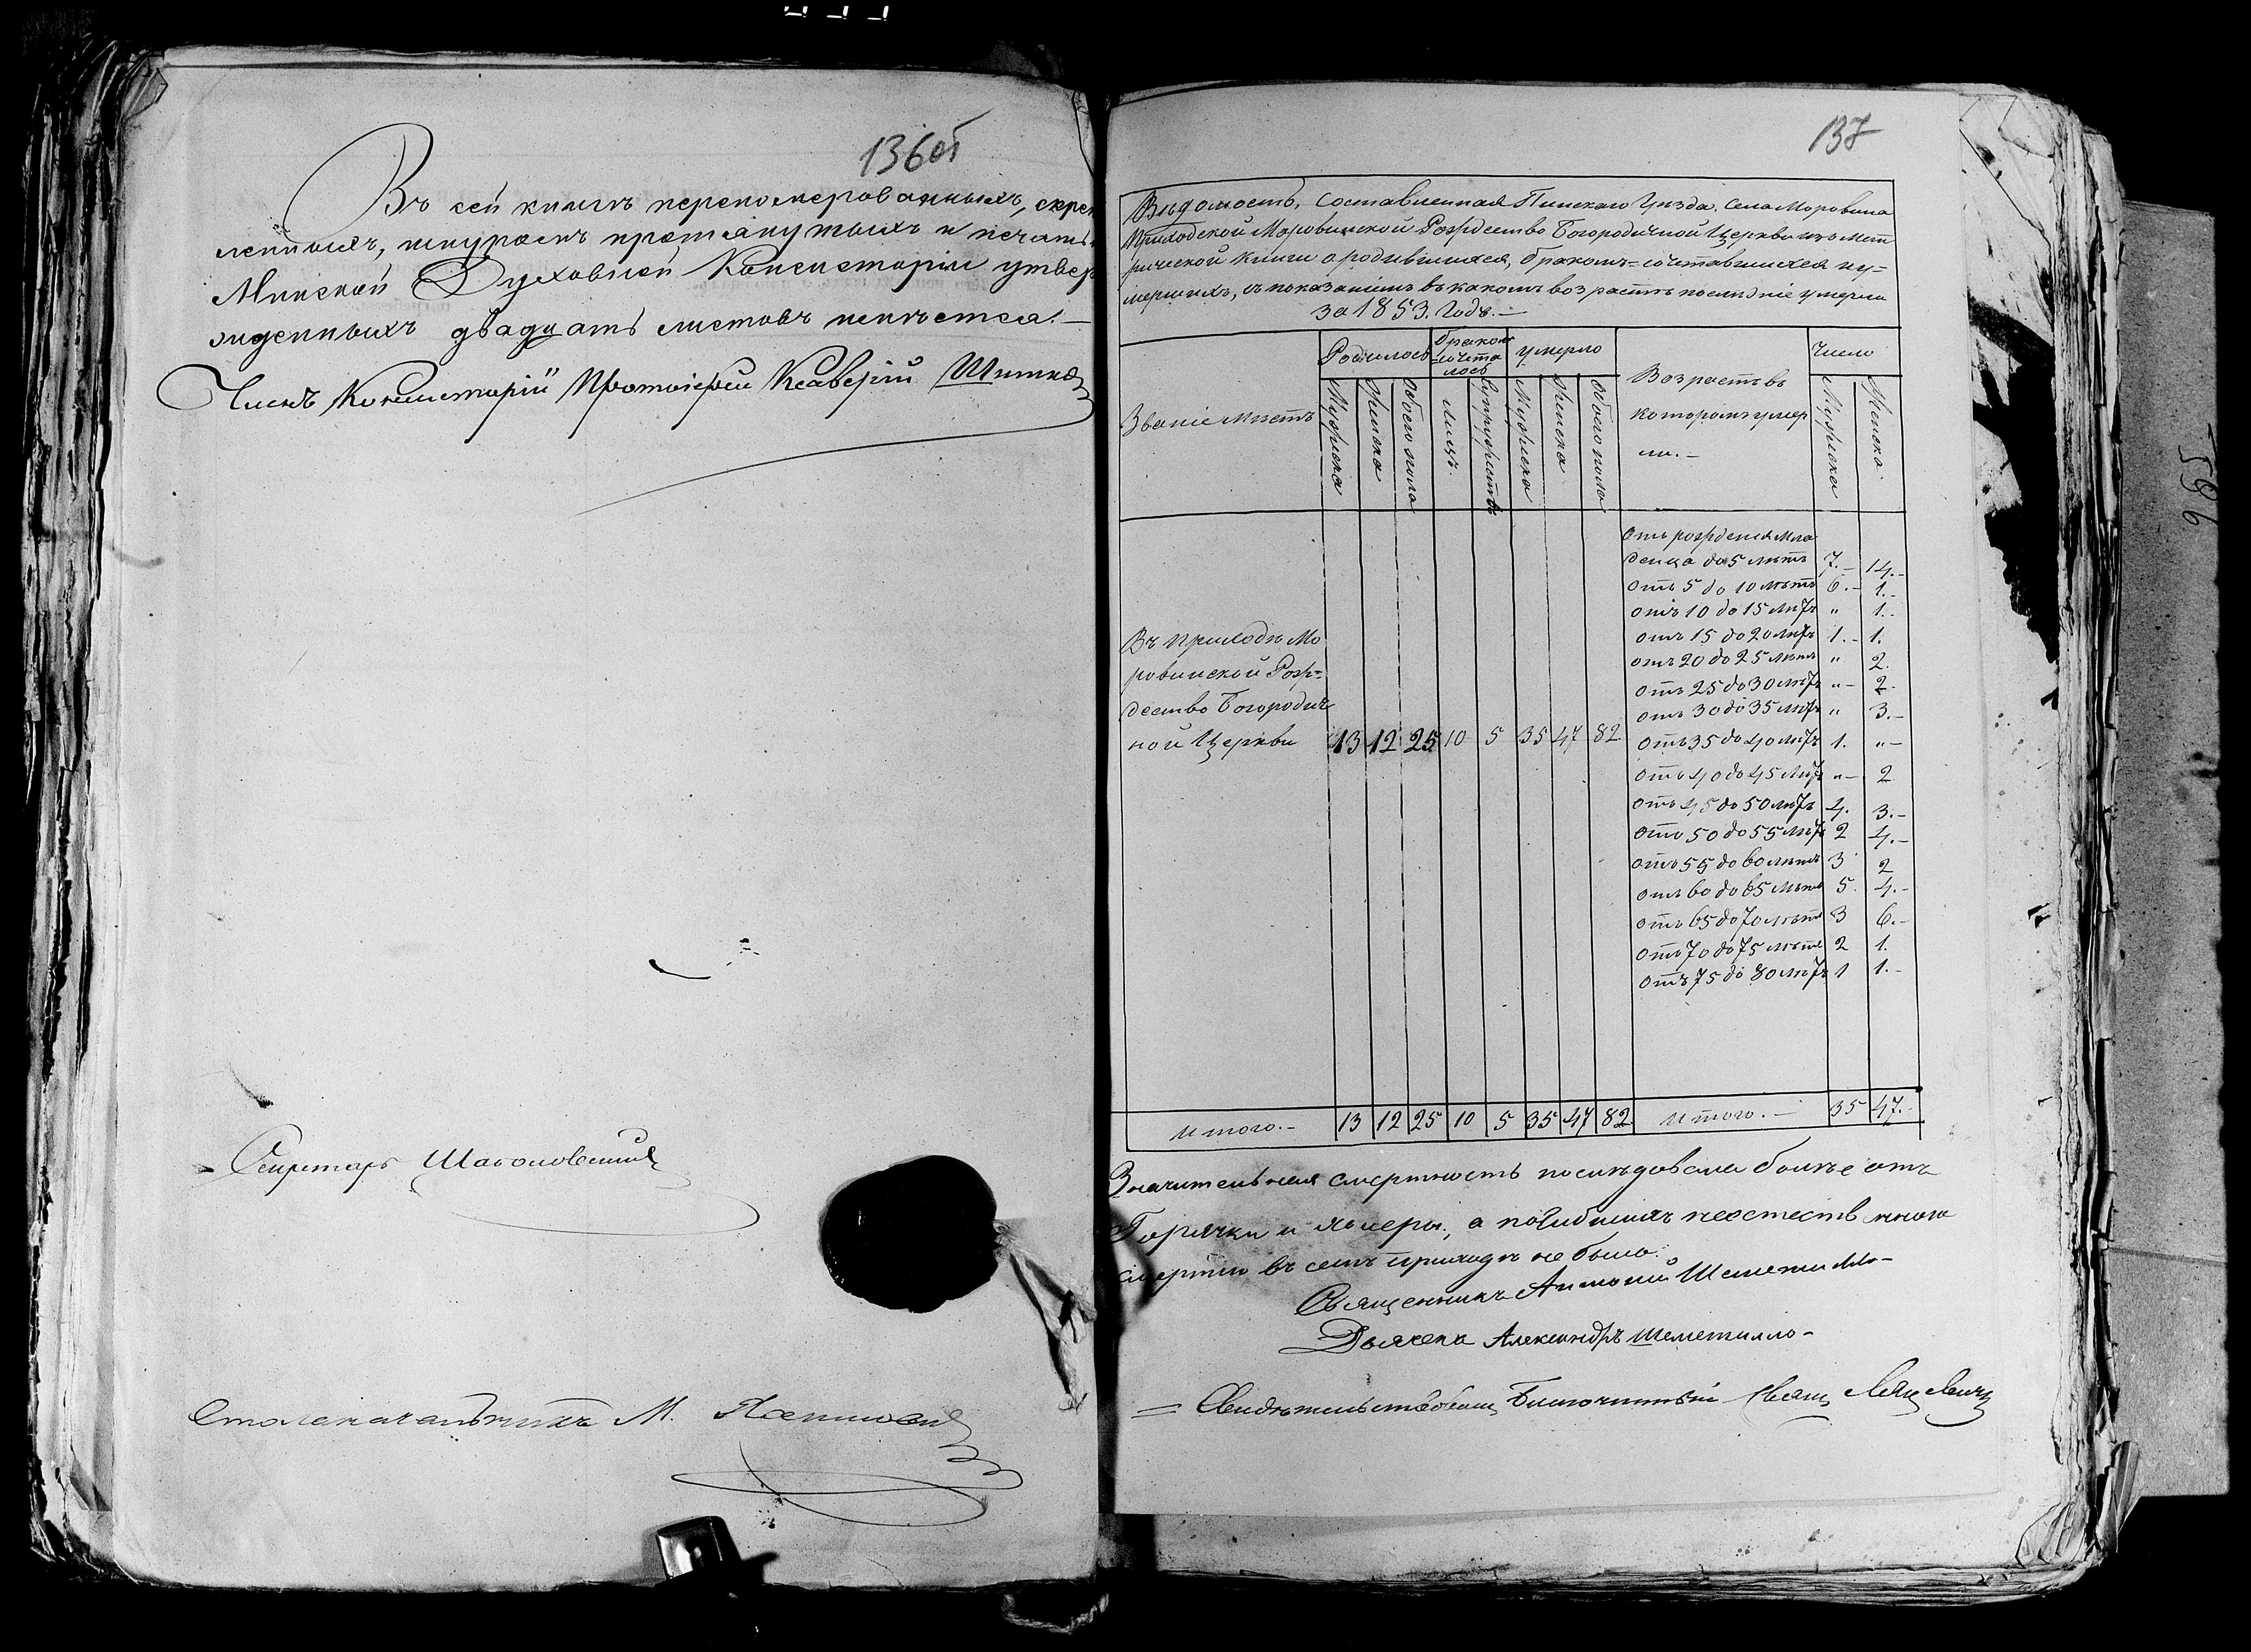 136об
Въ сей книгѣ перепомерованныхъ, скре
пленныхъ, шнуромъ протянутыхъ и печатью
Минской Духовной Консисторіи утвер
жденныхъ двадцать листовъ имѣется.—
Членъ Консисторіи Протоіерей Ксаверій
Секретарь
Столоначальникъ М.
137
Вѣдомость, составленная Пинскаго Уѣзда, села Моровина
Приходской Моровинской Рождество Богородичной Церкви изъ мет
рической книги о родившихся, бракомъ=сочетавшихся и у=
мершихъ, съ показаніемъ въ какомъ возрастѣ послѣдніе умерли
за 1853. Годъ.—
Званіе Мѣстъ
Родилось
Бракомъ
=сочета
лось
Умерло
Возрастъ въ
которомъ умер
ли.—
Число
Мужеска
Женска
Обоего пола
Лицъ.
Супружествъ
Мужеска
Женска
Обоего пола
Мужеска
Женска
Въ Приходѣ Мо
ровинской Рож=
дество Богородич
ной Церкви 13 12 25 10 5 35 47 82
Отъ рожденія мла
денца до 5 лѣтъ 7.- 14.-
Отъ 5 до 10 лѣтъ 6.- 1.-
Отъ 10 до 15 лѣтъ " 1.-
Отъ 15 до 20 лѣтъ 1.- 1.
Отъ 20 до 25 лѣтъ " 2.
Отъ 25 до 30 лѣтъ "- 2.
Отъ 30 до 35 лѣтъ " 3.-
Отъ 35 до 40 лѣтъ 1. "-
Отъ 40 до 45 лѣтъ "- 2
Отъ 45 до 50 лѣтъ 4. 3.-
Отъ 50 до 55 лѣтъ 2 4.-
Отъ 55 до 60 лѣтъ 3 2
Отъ 60 до 65 лѣтъ 5. 4.-
Отъ 65 до 70 лѣтъ 3 6.-
Отъ 70 до 75 лѣтъ 2 1.
Отъ 75 до 80 лѣтъ 1 1.-
Итого.- 13 12 25 10 5 35 47 82 Итого.- 35 47.-
Значительная смертность послѣдовала болѣе отъ
Горячки и холеры, а погибшихъ неестественною
смертію въ семъ приходѣ не было.
Священникъ Антоній Шеметилло-
Дьячекъ Александръ Шеметилло-
= Свидѣтельствовалъ Благочинный Свящ.
596